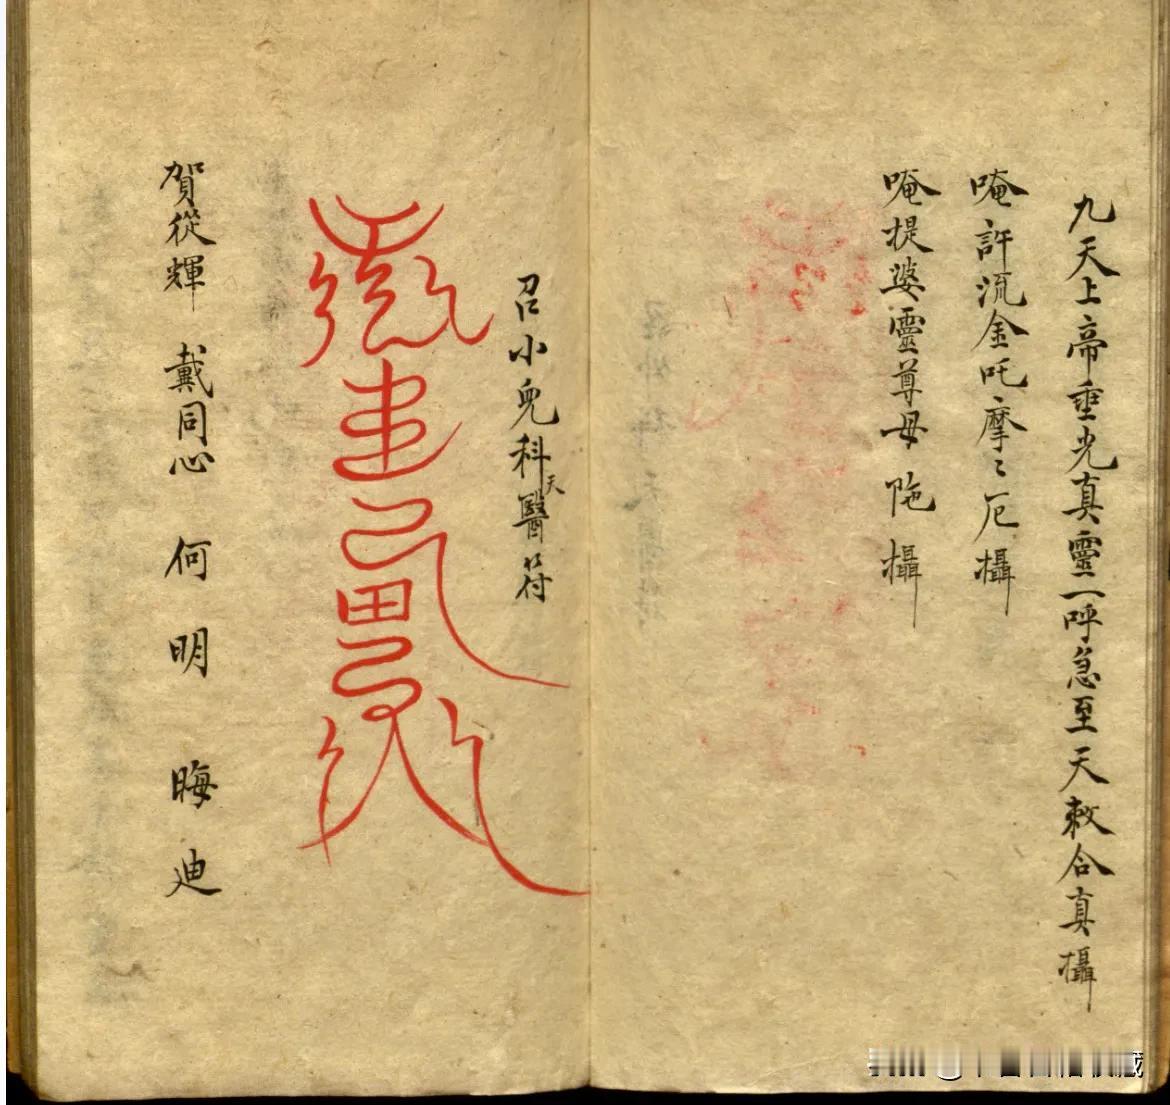 九天上帝垂光真靈一呼急至天敕合真攝
唵許流金吒摩〻厄攝
唵提婆靈尊母陁攝
召小兒科天醫符
賀從輝 戴同心 何明 晦迪